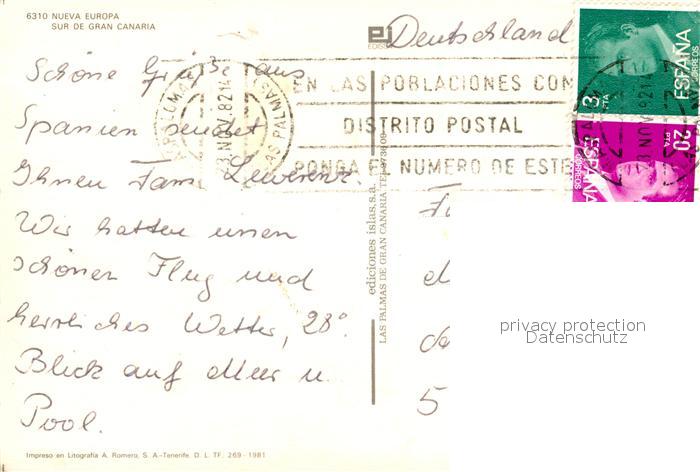 6310 NUEVA EUROPA
SUR DE GRAN CANARIA
ej
EDISSA
Deutschland
Schöne Grüsse aus
Spanien sendet
Ihnen Fam. Lewerenz.
Wir hatten einen
schönen Flug und
herrliches Wetter, 28°.
Blick auf Meer u.
Pool.
EN LAS POBLACIONES CON
DISTRITO POSTAL
PONGA EL NUMERO DE ESTE
NOV 82
LAS PALMAS
3 PTA
ESPAÑA
CORREOS
20 PTA
ESPAÑA
CORREOS
ediciones islas,s.a.
LAS PALMAS DE GRAN CANARIA TEL.
5
privacy protection
Datenschutz
Impreso en Litografía A. Romero, S. A.-Tenerife. D. L. TF. 269-1981